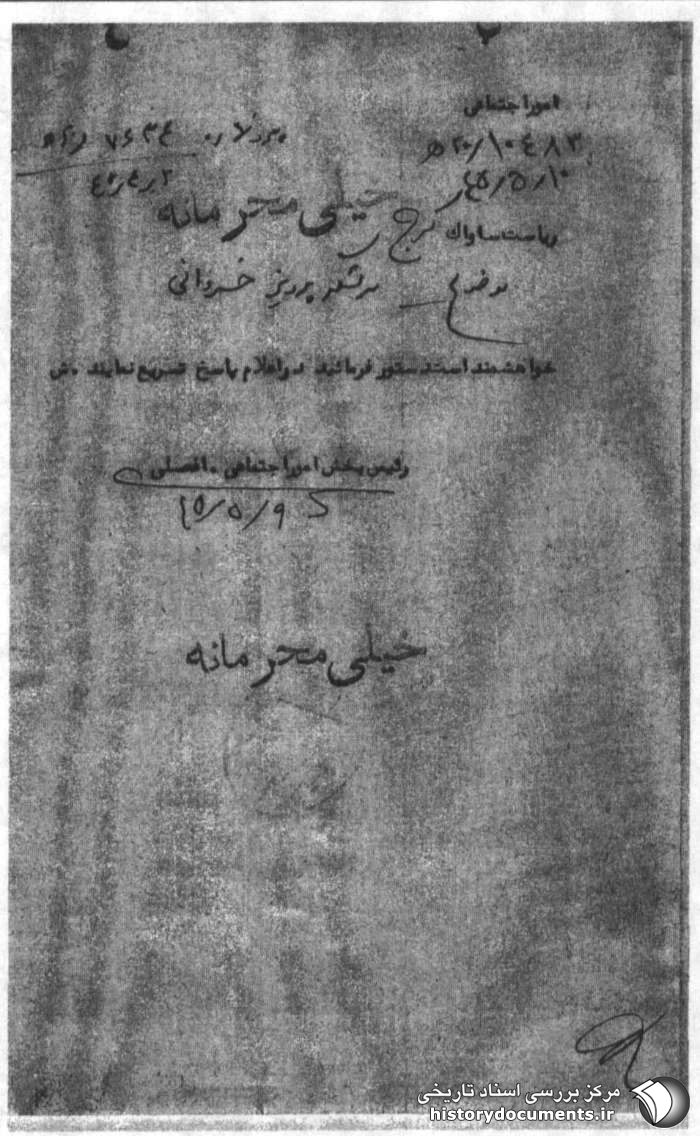 امور اجتماعی
۲۰/۱۰۴۸۳ ه
۴۵/۵/۱۰
خیلی محرمانه
ریاست ساواك کرج
موضوع سرلشگر پرویز خسروانی
خواهشمند است دستور فرمائید در اعلام پاسخ تسریع نمایند . ش
رئیس بخش امور اجتماعی . افضلی
۴۵/۵/۹
خیلی محرمانه
مرکز بررسی اسناد تاریخی
historydocuments.ir